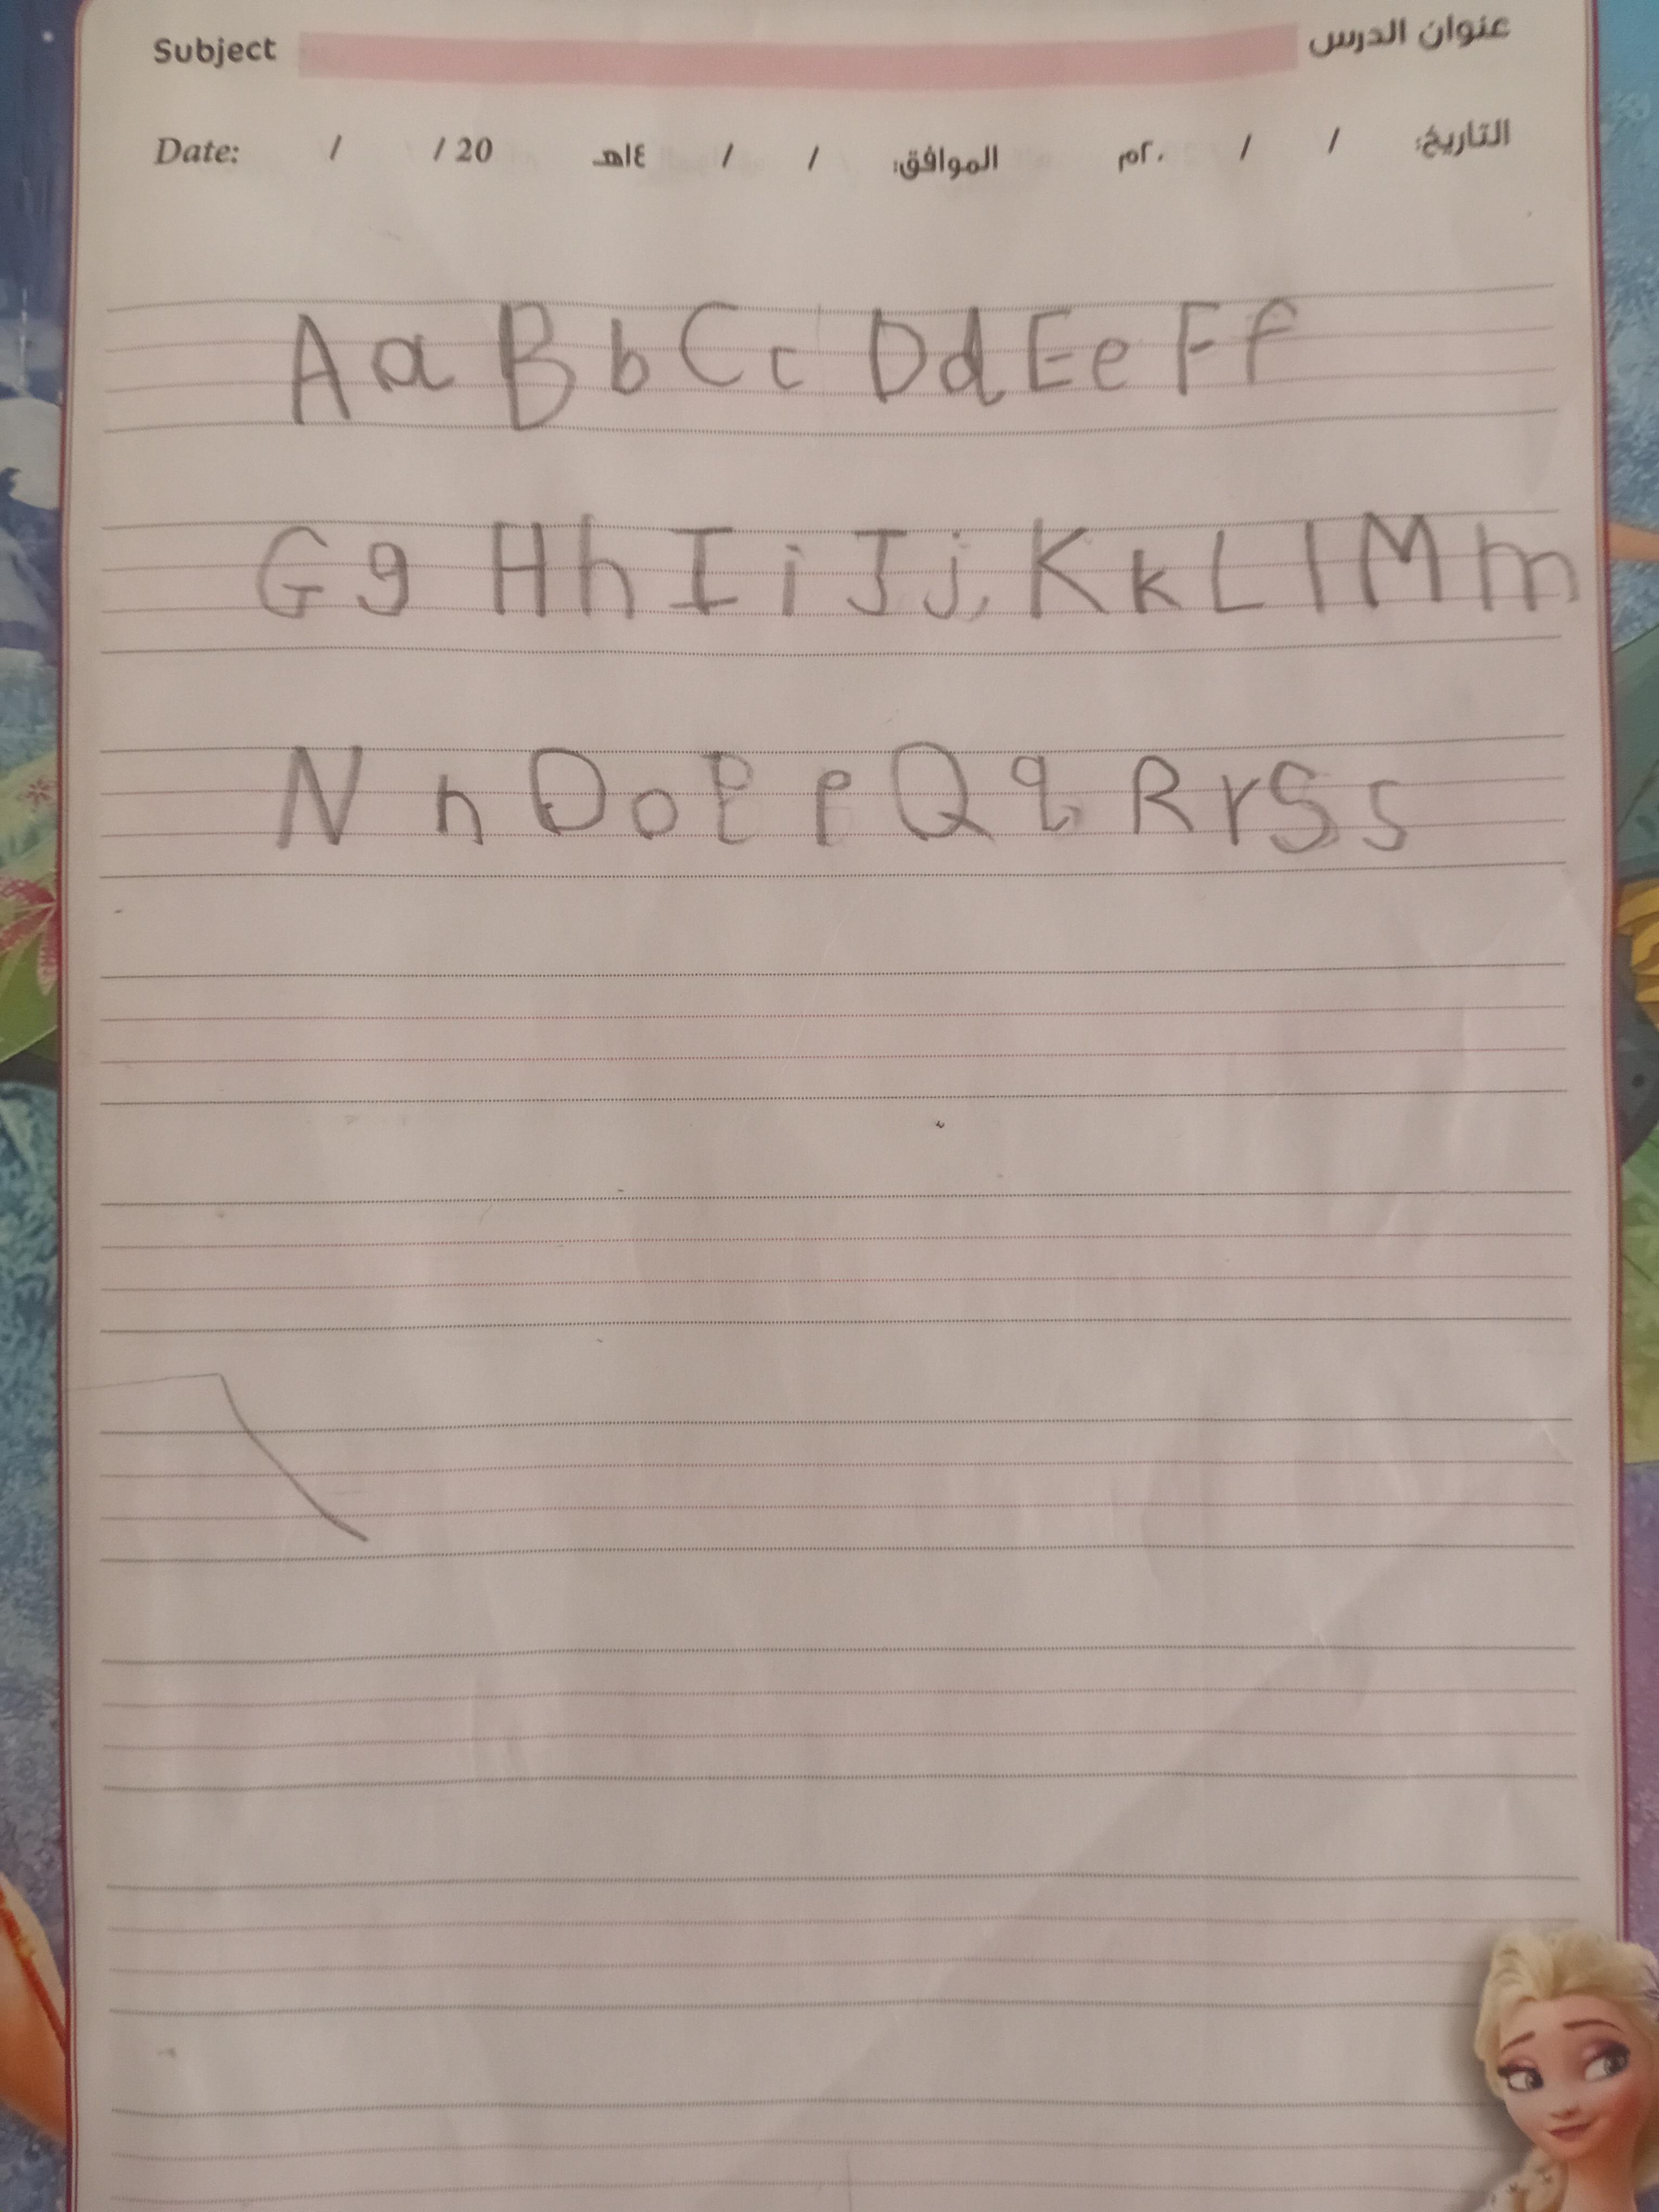 Subject عنوان الدرس
Date: / / 20 التاريخ: / / ٢٠م الموافق: / / ١٤هـ
Aa Bb Cc Dd Ee Ff
Gg Hh Ii Jj Kk Ll Mm
N n Oo P p Q q R r S s